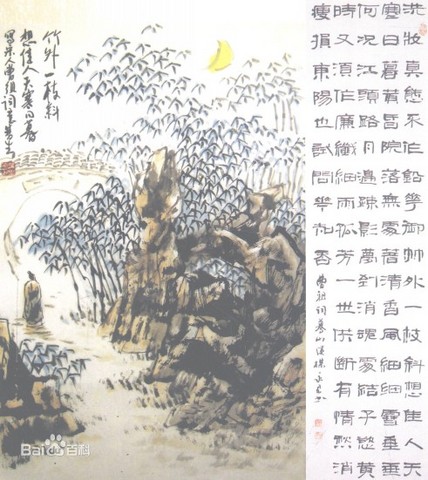 竹外一枝斜
想佳人天寒日暮
寫宋人曹组词意
洗妝真態不作鉛華御竹外一枝斜想佳人天
寒日暮黄昏院落無處著清香風細細雪垂垂
何況江頭路月邊疎影夢到消魂處結子慾黄
時又須作廉纖細雨孤芳一世供斷有情愁消
瘦損東陽也試問花知否
曹组词蓦山溪
Bai百科